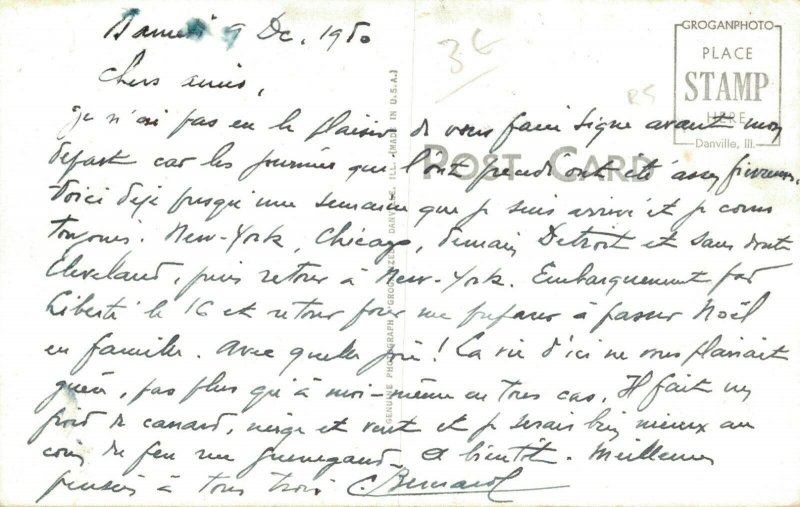 Samedi 9 Dc. 1950
Chers amis,
Je n'ai pas eu le plaisir de vous faire signe avant mon
départ car les journées qui l'ont précédé ont été assez fiévreuses.
Voici déjà presqu'une semaine que je suis arrivé et je cours
toujours. New-York, Chicago, demain Detroit et sans doute
Cleveland, puis retour à New-York. Embarquement sur
Liberté le 16 et retour pour me préparer à passer Noël
en famille. Avec quelle joie! La vie d'ici ne vous plairait
guère, pas plus qu'à moi-même en tous cas. Il fait un
froid de canard, neige et vent et je serais bien mieux au
coin du feu rue Guénégaud. A bientôt. Meilleures
pensées à tous trois C. Bernard
3€
RS
GROGANPHOTO
PLACE
STAMP
HERE
Danville, Ill.
POST CARD
GENUINE PHOTOGRAPH "GROGANIZED" DANVILLE, ILL. (MADE IN U.S.A.)